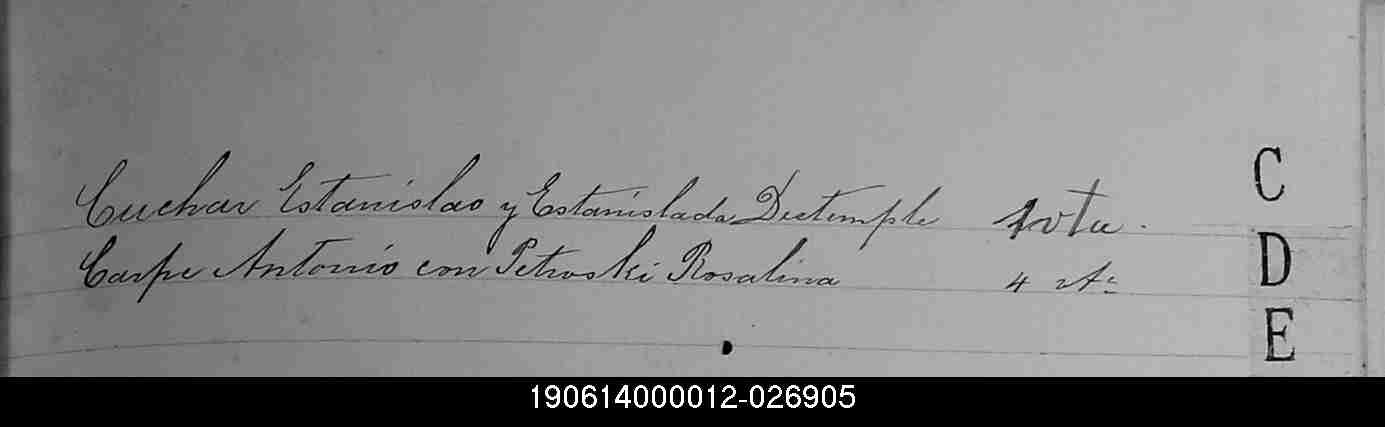 Cuchar Estanislao y Estanislada Dietemple 1 vta.
Carpe Antonio con Petroski Rosalina 4 vta
C
D
E
190614000012-026905